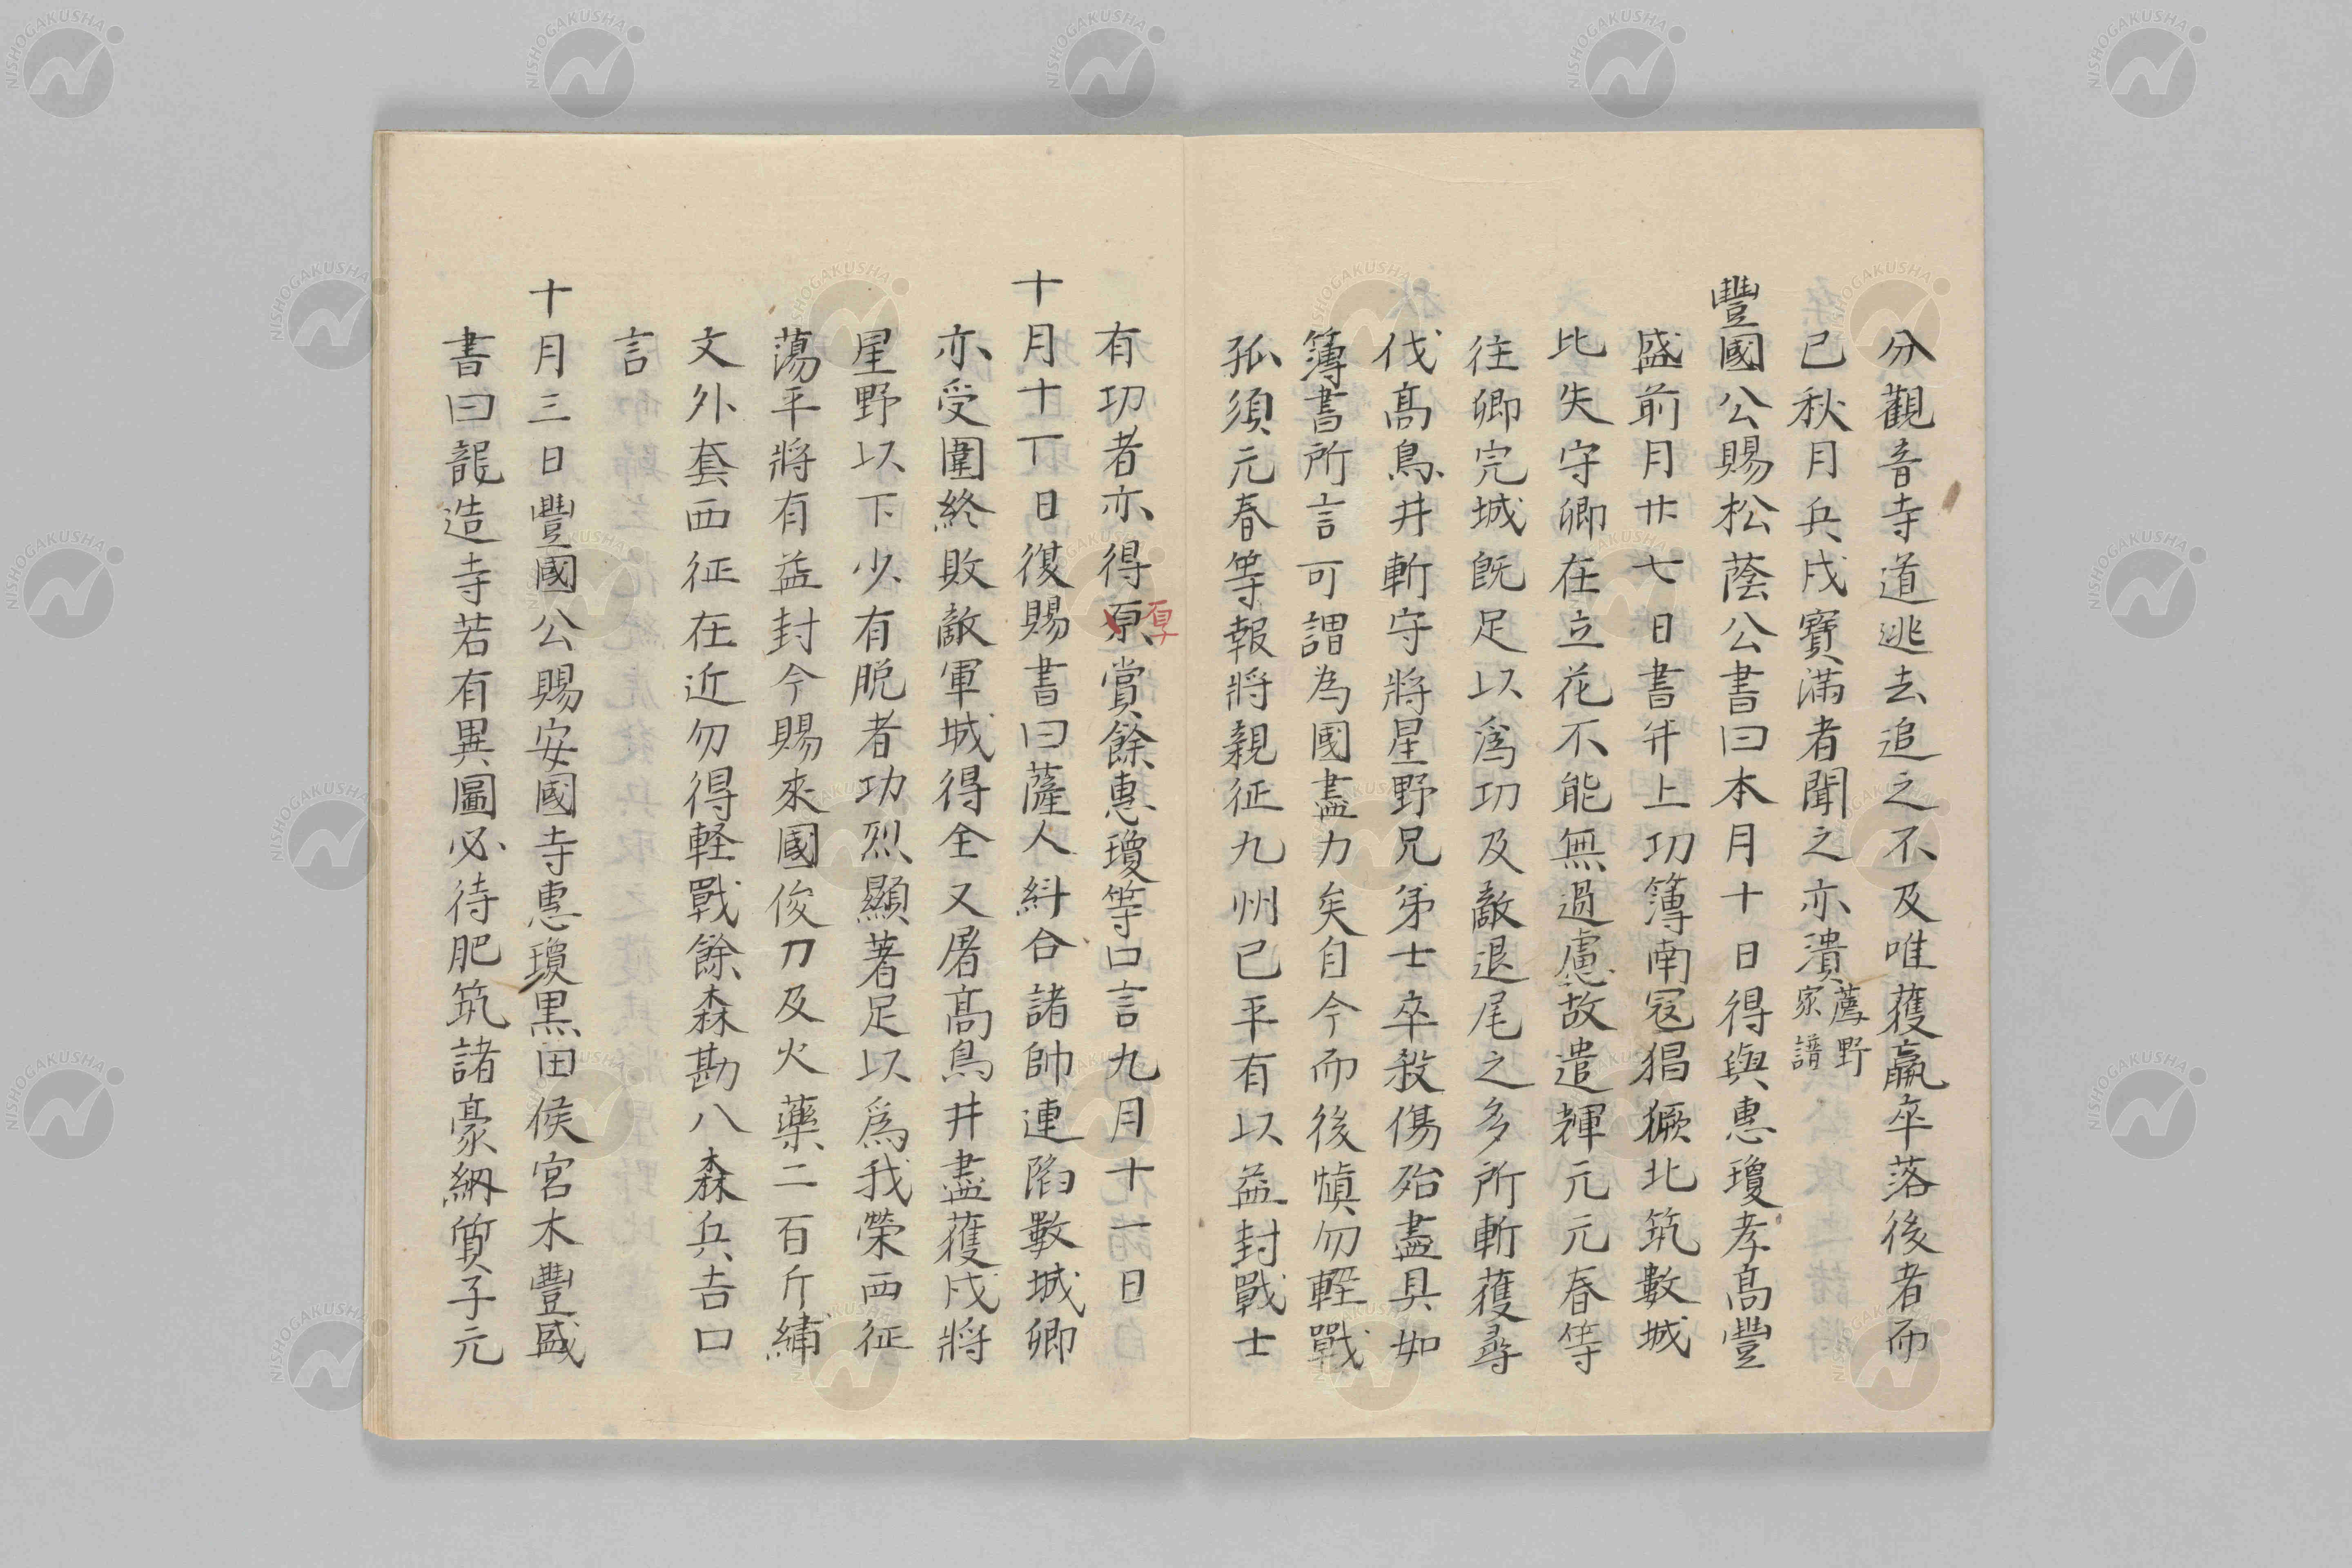 分觀音寺道逃去追之不及唯獲羸卒落後者而
已秋月兵戍寶滿者聞之亦潰薦野家譜
豐國公賜松蔭公書曰本月十日得與惠瓊孝高豐
盛前月廿七日書幷上功簿南冦猖獗北筑數城
比失守卿在立花不能無過慮故遣輝元元春等
往卿完城既足以爲功及敵退尾之多所斬獲尋
伐高鳥井斬守將星野兄弟士卒殺傷殆盡具如
簿書所言可謂為國盡力矣自今而後愼勿輕戰
孤須元春等報將親征九州已平有以益封戰士
有功者亦得原賞餘惠瓊等口言九月十一日
厚
十月十丁日復賜書曰薩人糾合諸帥連陷數城卿
亦受圍終敗敵軍城得全又屠高鳥井盡獲戍將
星野以下少有脱者功烈顯著足以爲我榮西征
蕩平將有益封今賜來國俊刀及火藥二百斤繡
文外套西征在近勿得軽戰餘森勘八森兵吉口
言
十月三日豐國公賜安國寺惠瓊黒田侯宮木豐盛
書曰龍造寺若有異圖必待肥筑諸豪納質子元